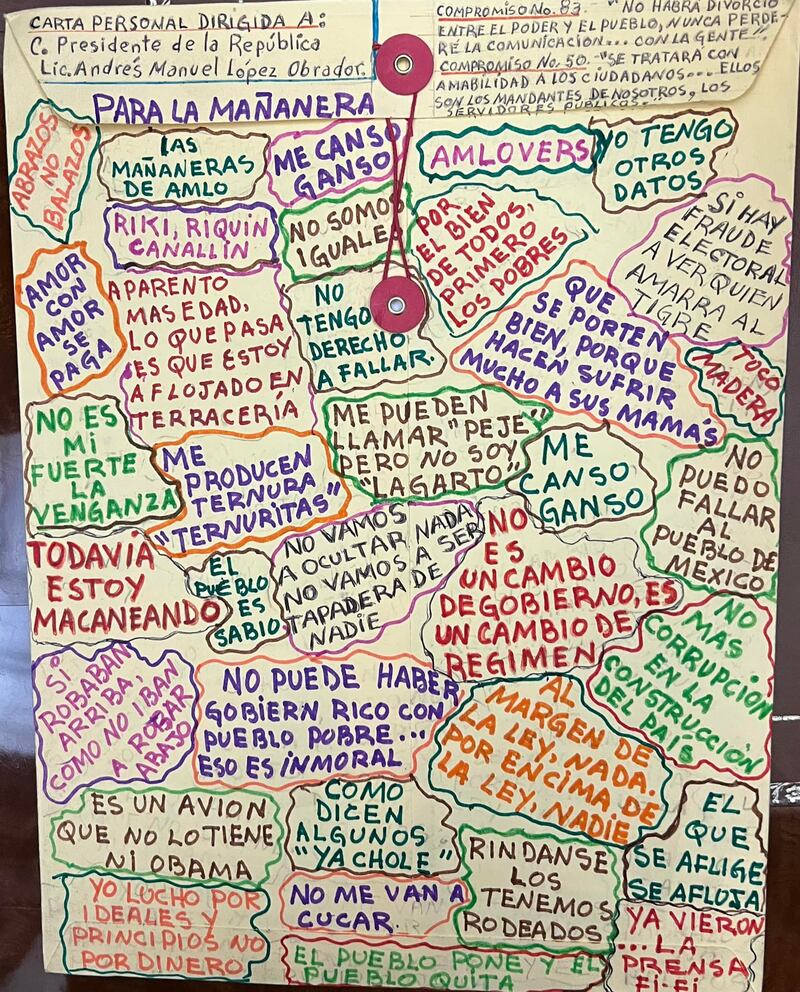 CARTA PERSONAL DIRIGIDA A:
C. Presidente de la República
Lic. Andrés Manuel López Obrador.
COMPROMISO No. 83.- "NO HABRÁ DIVORCIO
ENTRE EL PODER Y EL PUEBLO, NUNCA PERDE-
RÉ LA COMUNICACIÓN... CON LA GENTE".
COMPROMISO No. 50.- "SE TRATARÁ CON
AMABILIDAD A LOS CIUDADANOS... ELLOS
SON LOS MANDANTES DE NOSOTROS, LOS
SERVIDORES PÚBLICOS.
PARA LA MAÑANERA
ABRAZOS
NO
BALAZOS
LAS
MAÑANERAS
DE AMLO
ME CANSO
GANSO
AMLOVERS
YO TENGO
OTROS
DATOS
RIKI, RIQUIN
CANALLÍN
NO SOMOS
IGUALES
POR
EL BIEN
DE TODOS,
PRIMERO
LOS POBRES
SI HAY
FRAUDE
ELECTORAL
A VER QUIEN
AMARRA AL
TIGRE
AMOR
CON
AMOR
SE
PAGA
APARENTO
MAS EDAD,
LO QUE PASA
ES QUE ESTOY
AFLOJADO EN
TERRACERÍA
NO
TENGO
DERECHO
A FALLAR.
QUE
SE PORTEN
BIEN, PORQUE
HACEN SUFRIR
MUCHO A SUS MAMÁS
TOCO
MADERA
NO ES
MI
FUERTE
LA
VENGANZA
ME
PRODUCEN
TERNURA
"TERNURITAS"
ME PUEDEN
LLAMAR "PEJE"
PERO NO SOY
"LAGARTO"
ME
CANSO
GANSO
NO
PUEDO
FALLAR
AL
PUEBLO DE
MEXICO
TODAVÍA
ESTOY
MACANEANDO
EL
PUEBLO
ES
SABIO
NO VAMOS
A OCULTAR NADA
NO VAMOS A SER
TAPADERA DE
NADIE
NO
ES
UN CAMBIO
DE GOBIERNO, ES
UN CAMBIO DE
REGIMEN
NO
MAS
CORRUPCIÓN
EN LA
CONSTRUCCIÓN
DEL PAÍS
SI
ROBABAN
ARRIBA,
COMO NO IBAN
A ROBAR
ABAJO
NO PUEDE HABER
GOBIERN RICO CON
PUEBLO POBRE...
ESO ES INMORAL
AL
MARGEN DE
LA LEY, NADA.
POR ENCIMA DE
LA LEY, NADIE
ES UN AVION
QUE NO LO TIENE
NI OBAMA
COMO
DICEN
ALGUNOS
"YA CHOLE"
RINDANSE
LOS
TENEMOS
RODEADOS
EL
QUE
SE AFLIGE
SE AFLOJA
YO LUCHO POR
IDEALES Y
PRINCIPIOS NO
POR DINERO
NO ME VAN A
CUCAR.
YA VIERON
...LA
PRENSA
FI-FI
EL PUEBLO PONE Y EL
PUEBLO QUITA